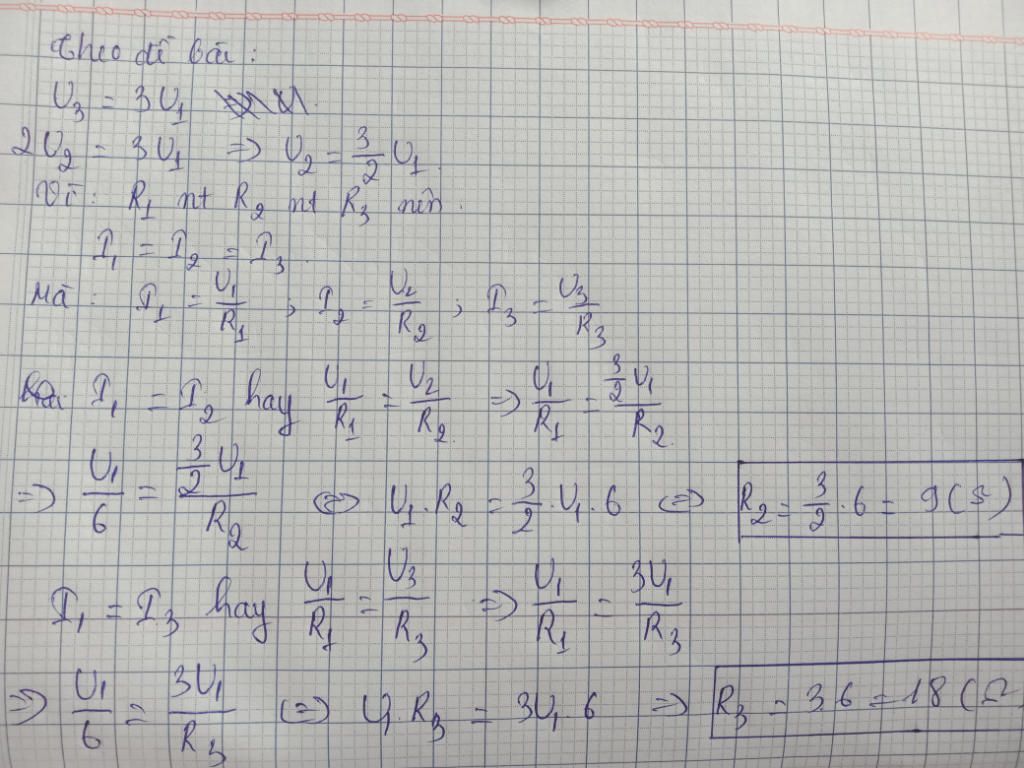 Theo đề bài :
U₃ = 3U₁
2U₂ = 3U₁ => U₂ = 3/2 U₁
Vì : R₁ nt R₂ nt R₃ nên.
I₁ = I₂ = I₃.
Mà : I₁ = U₁/R₁ ; I₂ = U₂/R₂ ; I₃ = U₃/R₃
I₁ = I₂ hay U₁/R₁ = U₂/R₂ => U₁/R₁ = 3/2 U₁/R₂
=> U₁/6 = 3/2 U₁/R₂ <=> U₁.R₂ = 3/2 . U₁ . 6 <=> R₂ = 3/2 . 6 = 9 (Ω)
I₁ = I₃ hay U₁/R₁ = U₃/R₃ => U₁/R₁ = 3U₁/R₃
=> U₁/6 = 3U₁/R₃ <=> U₁.R₃ = 3U₁.6 => R₃ = 3.6 = 18 (Ω